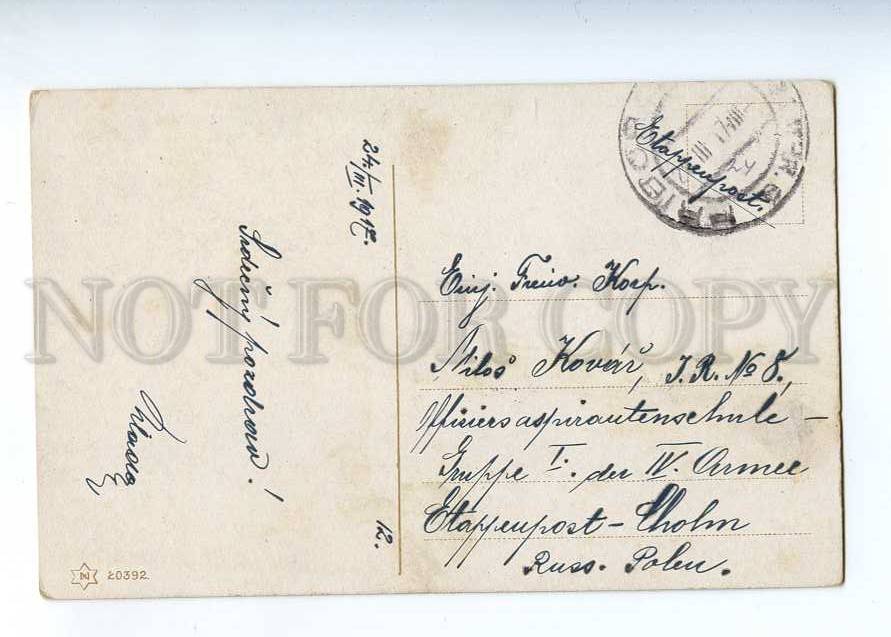 24/III. 1917.
Srdečný pozdrav!
12.
20392
Etappenpost.
24
Einj. Freiw. Korp.
Miloš Kovář, I.R. No 8,
Offiziersaspirantenschule -
Gruppe I. der IV. Armee
Etappenpost - Cholm
Russ. Polen.
NOT FOR COPY